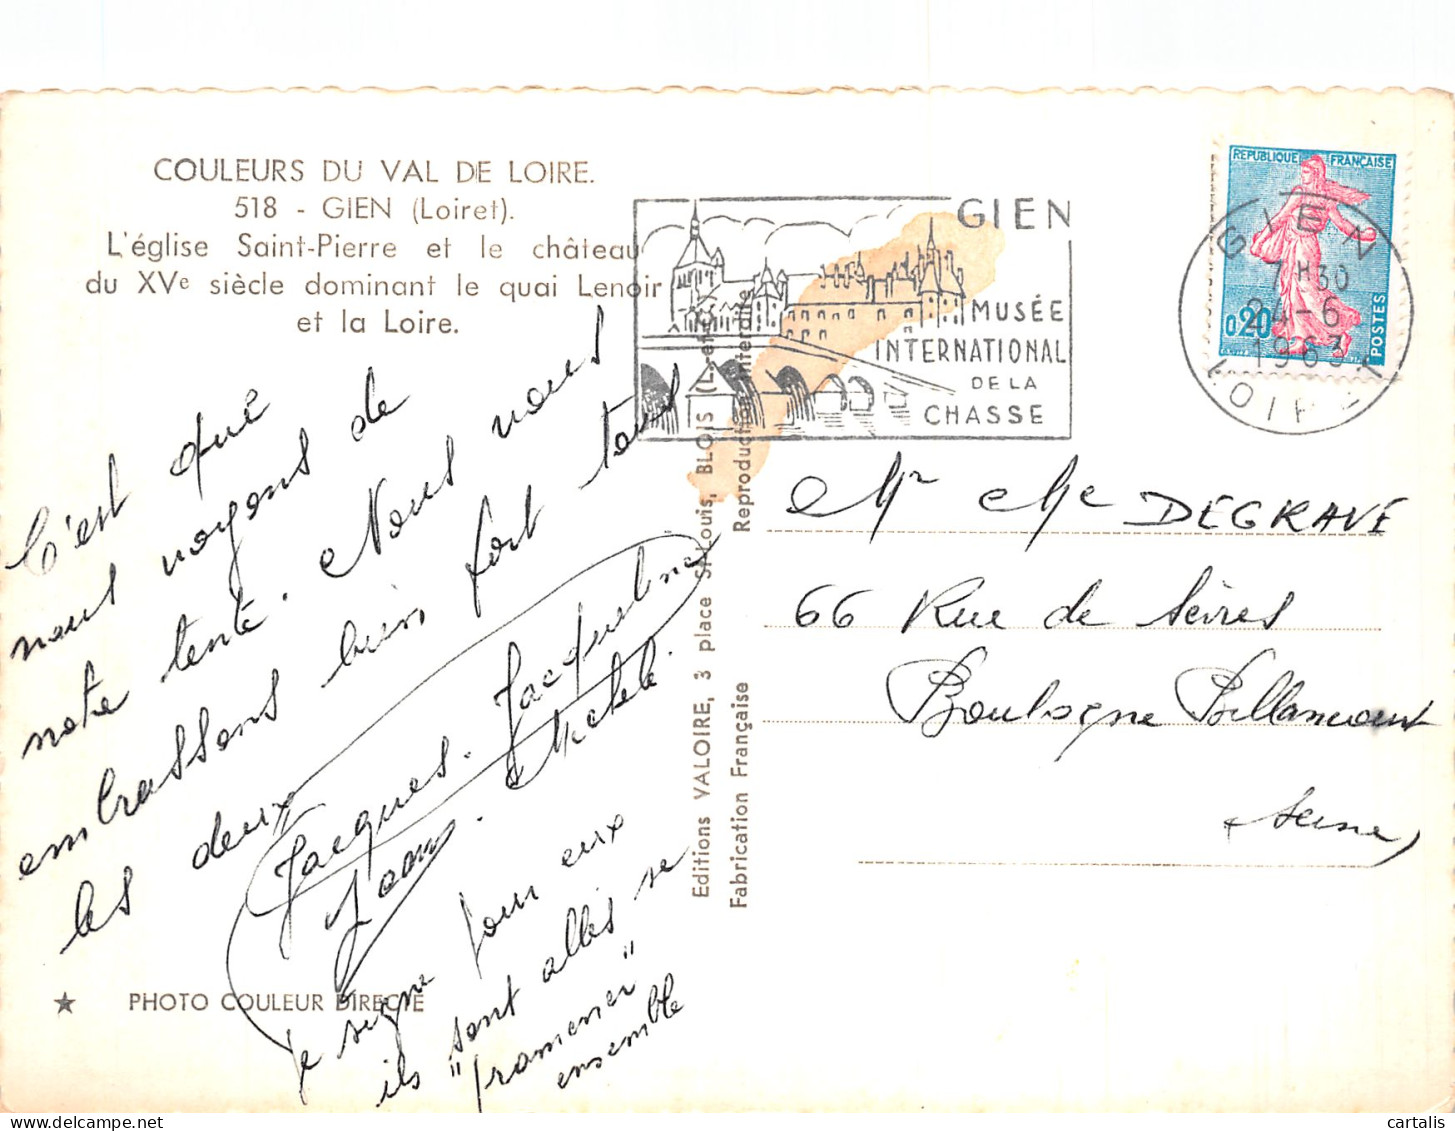 COULEURS DU VAL DE LOIRE.
518 - GIEN (Loiret).
L'église Saint-Pierre et le château
du XVe siècle dominant le quai Lenoir
et la Loire.
C'est que
nous voyons de
notre tente. Nous vous
embrassons bien fort tous
les deux
Jacques. Jacqueline
Michele
je signe pour eux
ils "sont allés se
promener"
ensemble
PHOTO COULEUR DIRECTE
Editions VALOIRE, 3 place St-Louis, BLOIS (L.-et-C.)
Fabrication Française Reproduction interdite
GIEN
MUSÉE
INTERNATIONAL
DE LA
CHASSE
REPUBLIQUE FRANÇAISE
0,20
POSTES
GIEN
7H30
24-6
1963
LOIRET
Mr Me DEGRAVE
66 Rue de Sèvres
Boulogne Billancourt
Seine
cartalis